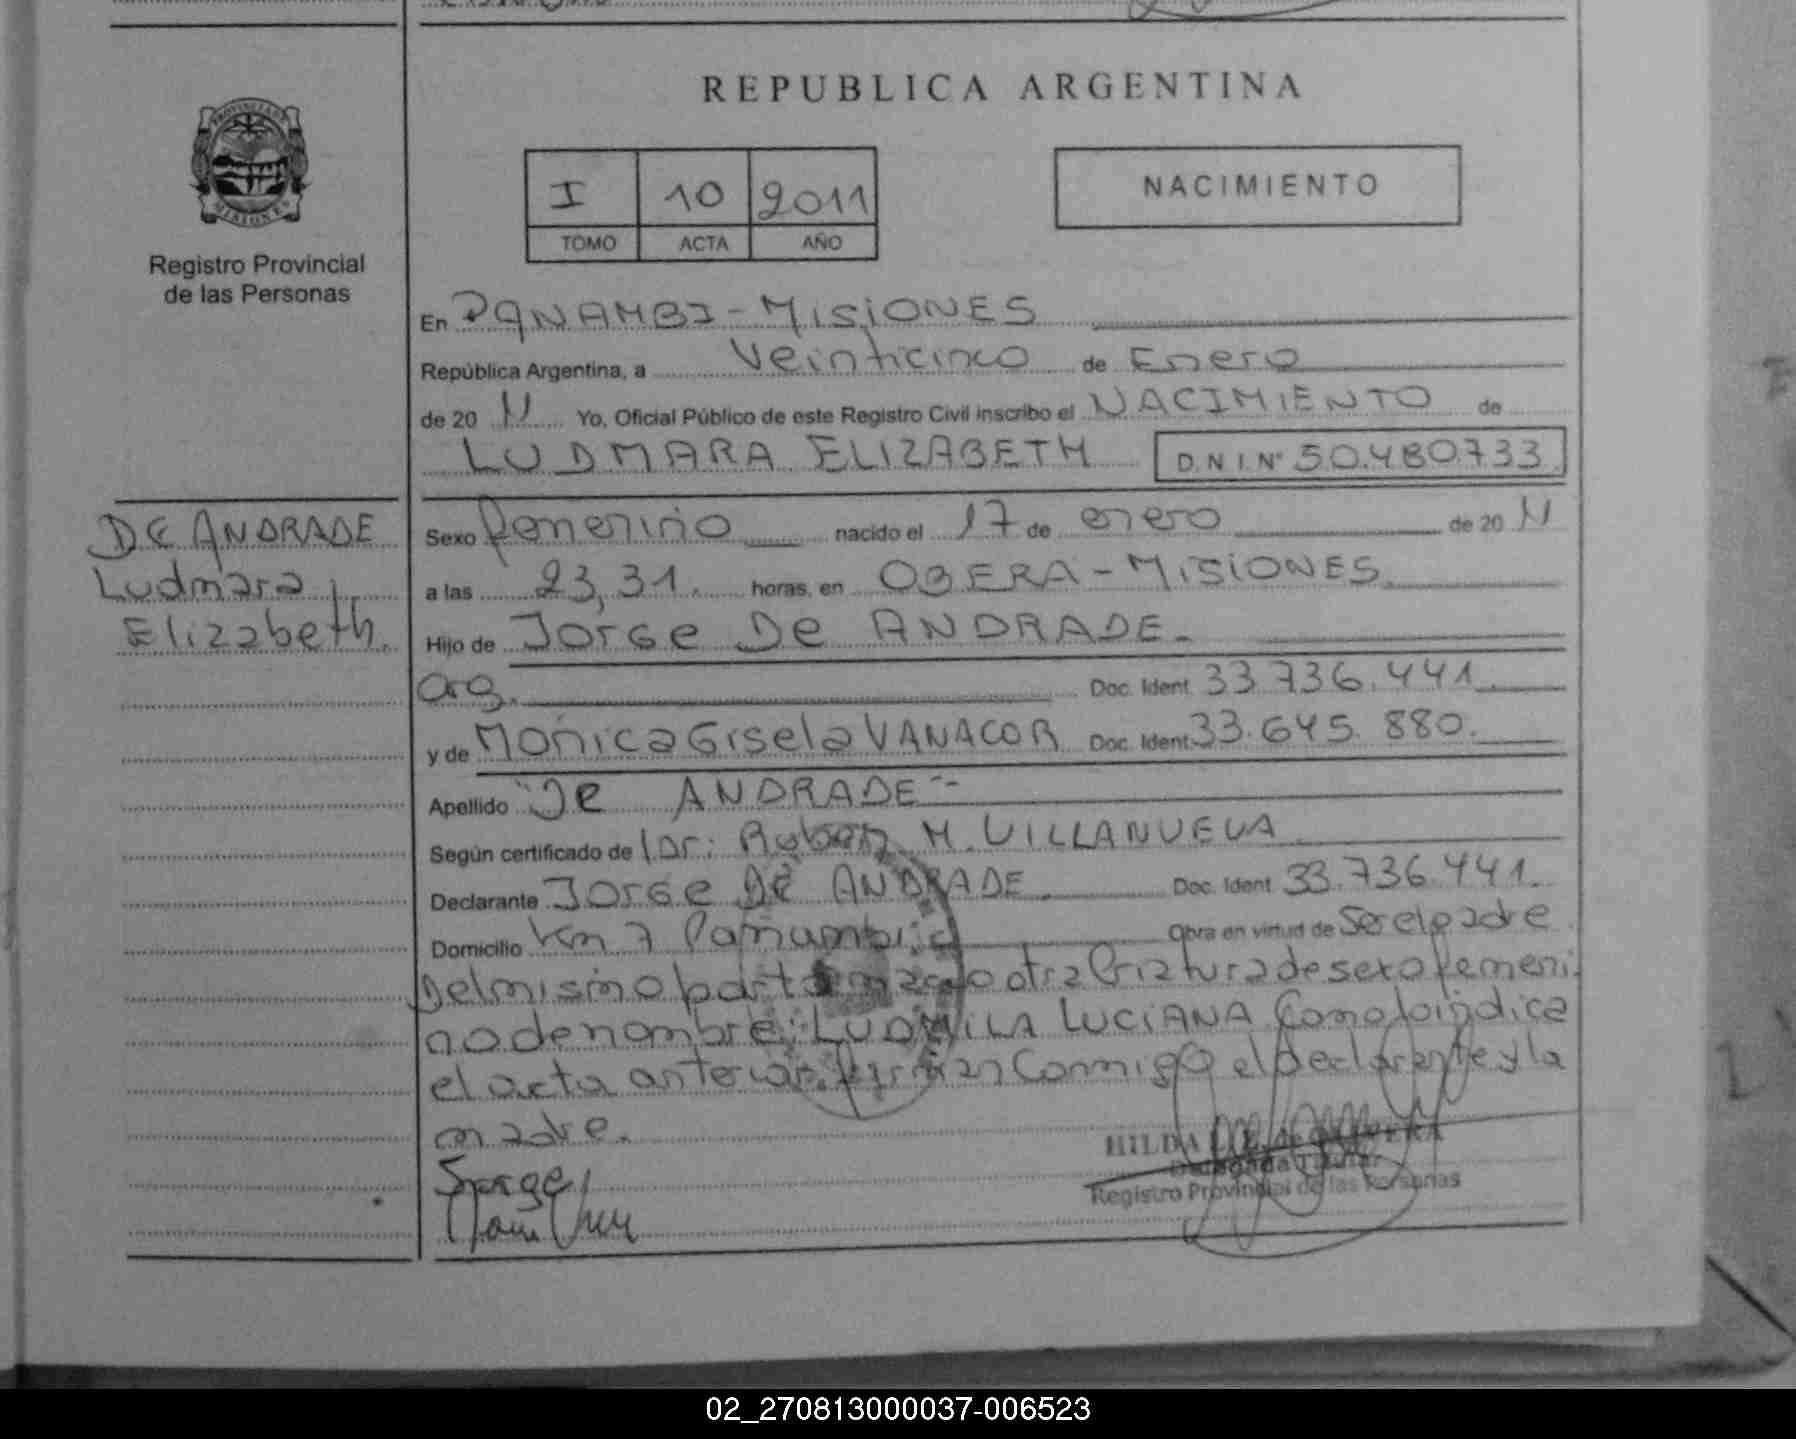 REPUBLICA ARGENTINA
PROVINCIA DE
MISIONES
Registro Provincial
de las Personas
I 10 2011
TOMO ACTA AÑO
NACIMIENTO
En PANAMBI - MISIONES
República Argentina, a Veinticinco de Enero
de 20 11 Yo, Oficial Público de este Registro Civil inscribo el NACIMIENTO de
LUDMARA ELIZABETH D.N.I. Nº 50.480.733
DE ANDRADE
Ludmara
Elizabeth.
Sexo femenino nacido el 17 de enero de 20 11
a las 23,31. horas, en OBERA - MISIONES
Hijo de Jorge De ANDRADE.
arg. Doc. Ident. 33.736.441.
y de Monica Gisela VANACOR Doc. Ident. 33.645.880.
Apellido "De ANDRADE"-
Según certificado de Dr: Ruben M. VILLANUEVA
Declarante Jorge DE ANDRADE. Doc. Ident. 33.736.441.
Domicilio Km 7 Panambi Obra en virtud de Ser el padre.
Del mismo parto nacio otra Criatura de sexo femeni
no de nombre: LUDMILA LUCIANA Como lo indica
el acta anterior. firman Conmigo el declarante y la
madre.
Jorge
HILDA de
Delegada Titular
Registro Provincial de las Personas
02_270813000037-006523